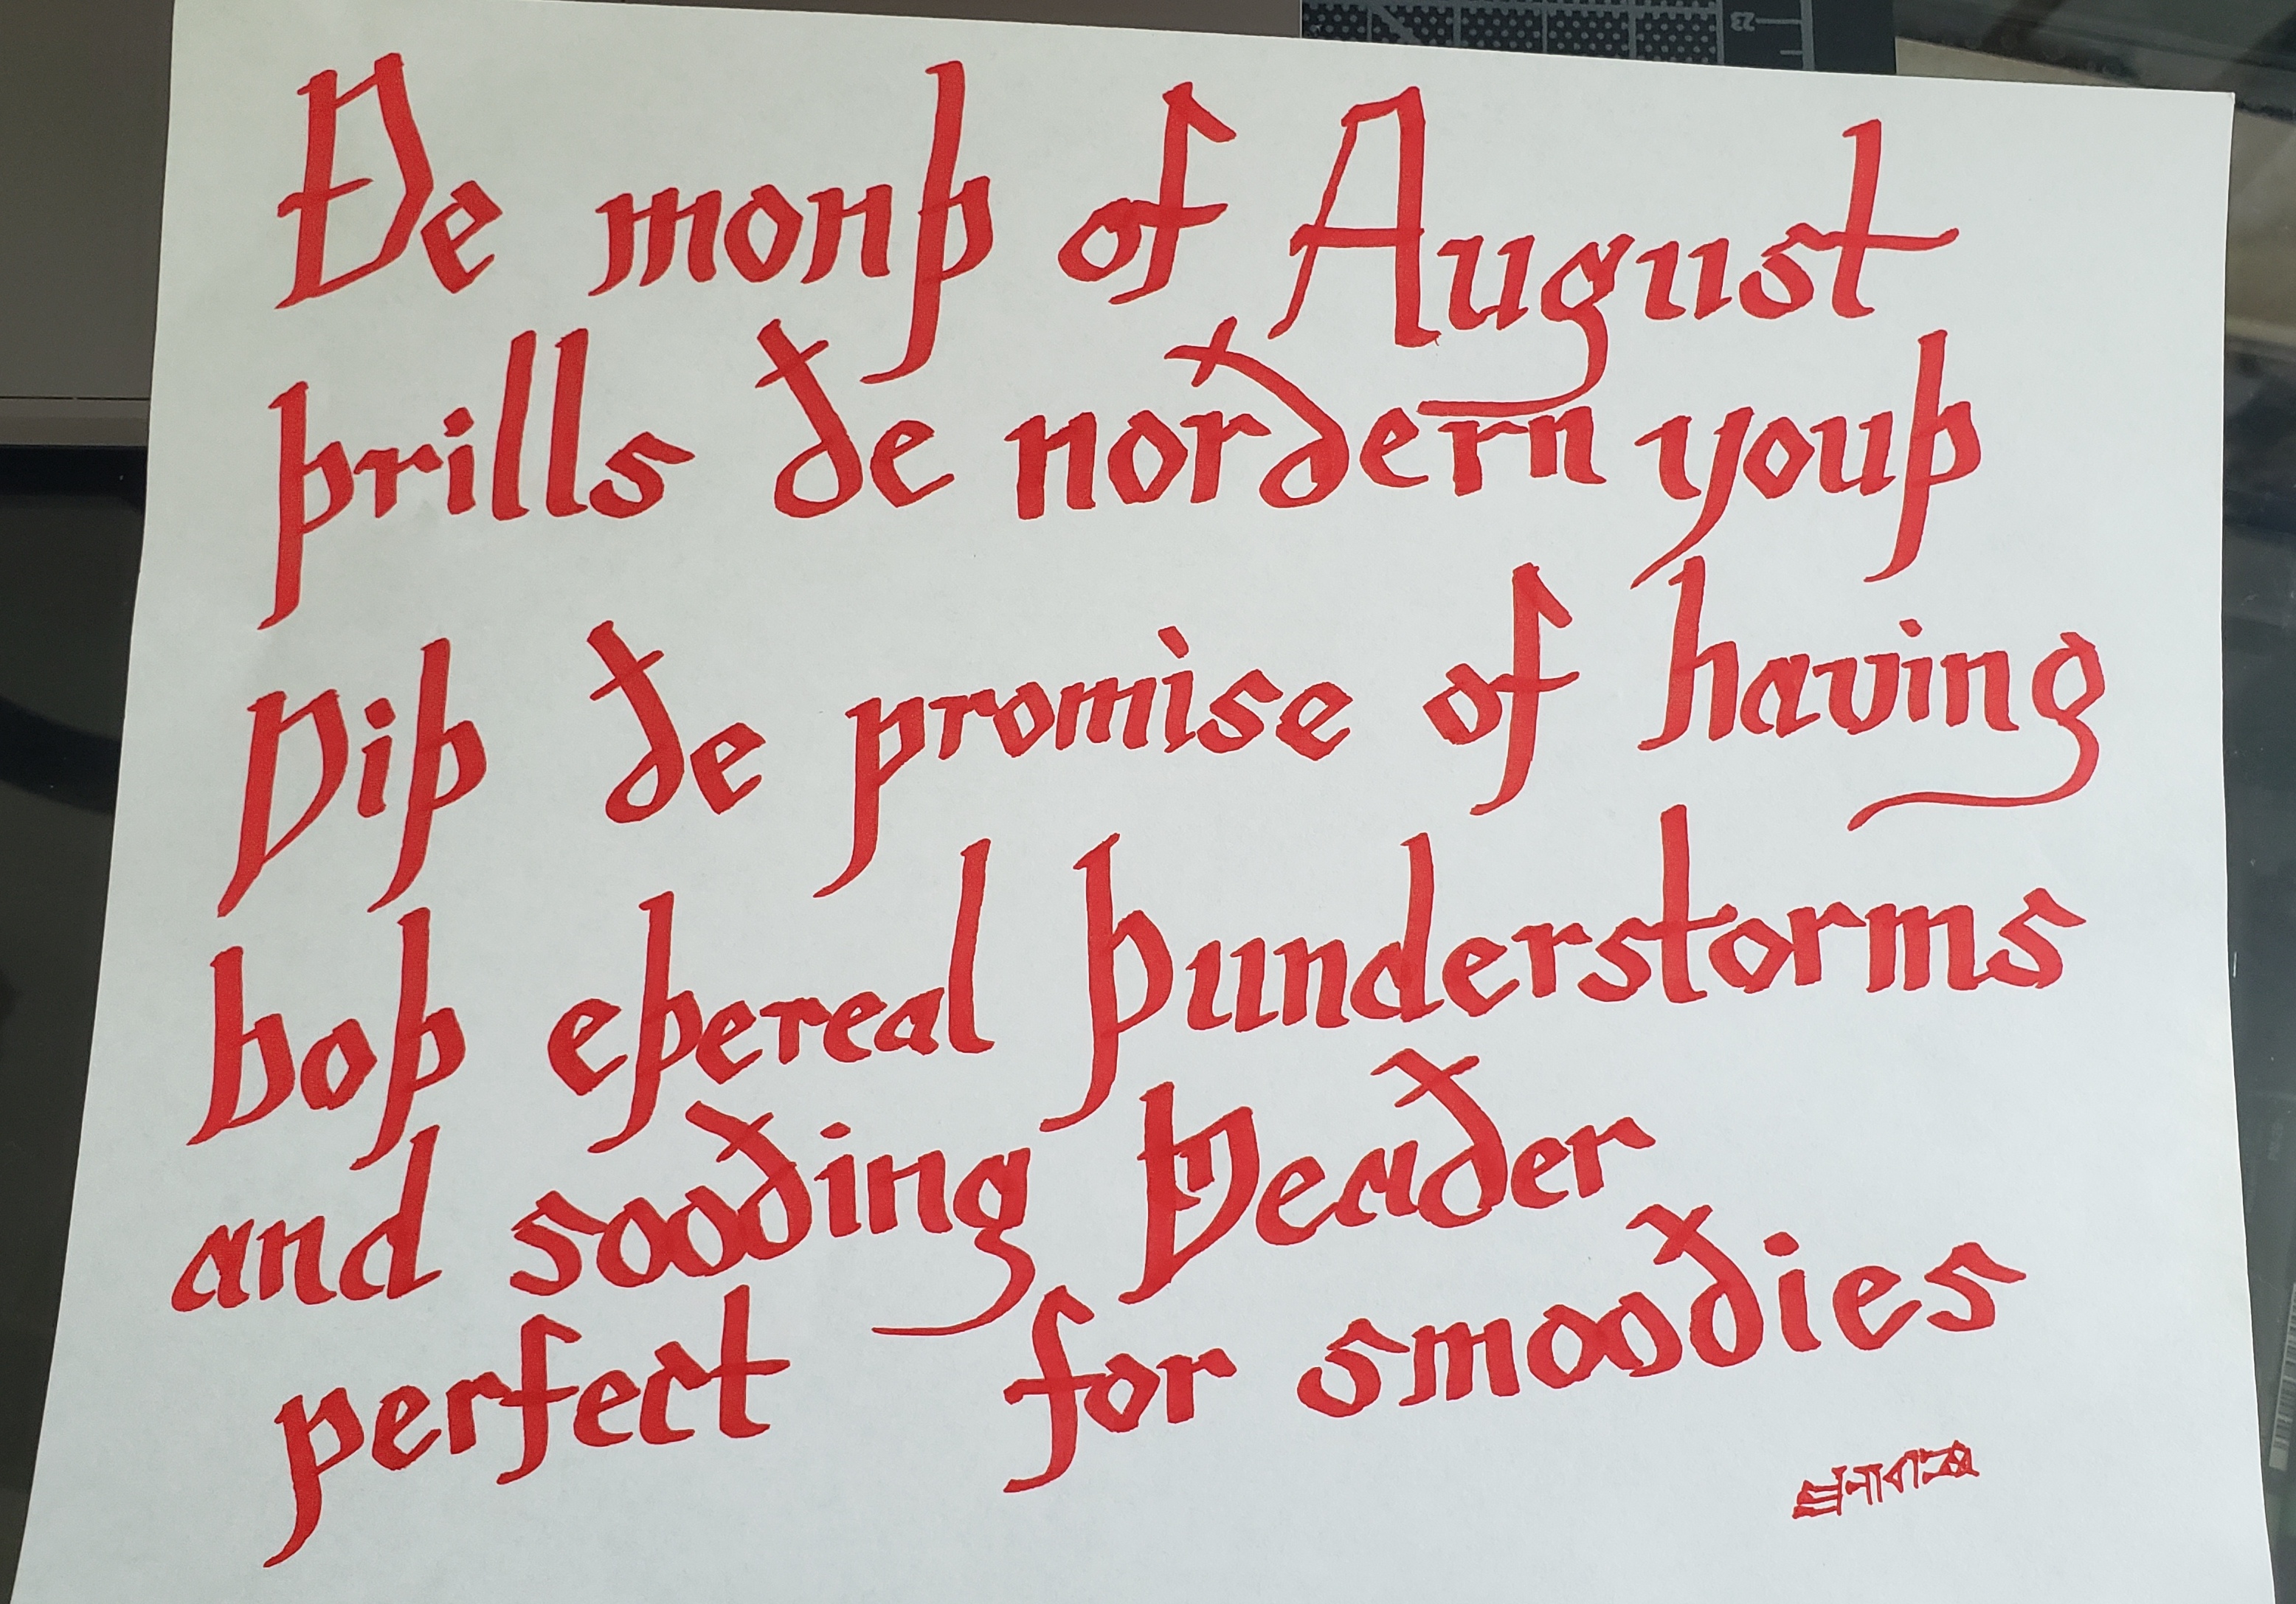 23
Ðe monþ of August
þrills ðe norðern youþ
Ƿiþ ðe promise of having
boþ eþereal þunderstorms
and sooðing Ƿeaðer
perfect for smooðies